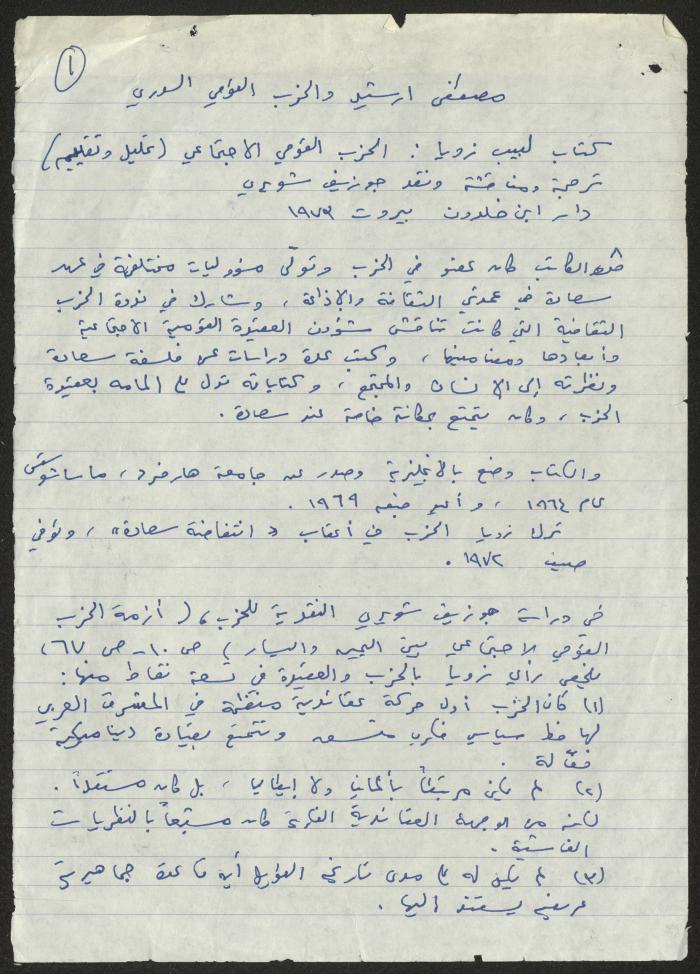 ١
مصطفى ارشيد والحزب القومي السوري
كتاب لبيب زويا : الحزب القومي الاجتماعي (تحليل وتقييم)
ترجمة ومناقشة ونقد جوزيف شويري
دار ابن خلدون بيروت ١٩٧٣
الكاتب كان عضو في الحزب وتولّى مسؤوليات مختلفة في عهد
سعادة في عمدتي الثقافة والإذاعة ، وشارك في ندوة الحزب
الثقافية التي كانت تناقش شؤون العقيدة القومية الاجتماعية
وأبعادها ومضامينها ، وكتب عدة دراسات عن فلسفة سعادة
ونظرته إلى الانسان والمجتمع ، وكتاباته تدل على المامه بعقيدة
الحزب ، وكان يتمتع بمكانة خاصة عند سعادة .
والكتاب وضع بالانجليزية وصدر عن جامعة هارفرد ، ماساشوستس
عام ١٩٦٤ ، و أعيد طبعه ١٩٦٩ .
ترك زويا الحزب في أعقاب « انتفاضة سعادة» ، وتوفي
صيف ١٩٧٢ .
في دراسة جوزيف شويري النقدية للحزب ، ( أزمة الحزب
القومي الاجتماعي بين اليمين واليسار ) ص ١٠ - ص ٦٧ ،
يلخص رأي زويا بالحزب والعقيدة في تسعة نقاط منها :
(١) كان الحزب أول حركة عقائدية منظمة في المشرق العربي
لها خط سياسي فكري متسق وتتمتع بقيادة ديناميكية
فعّالة .
(٢) لم يكن مرتبطاً بألمانيا ولا إيطاليا ، بل كان مستقلاً .
لكنه من الوجهة العقائدية الفكرية كان متبعاً بالنظريات
الفاشية .
(٣) لم يكن له على مدى تاريخه الطويل أية قاعدة جماهيرية
عريضة يستند اليها .